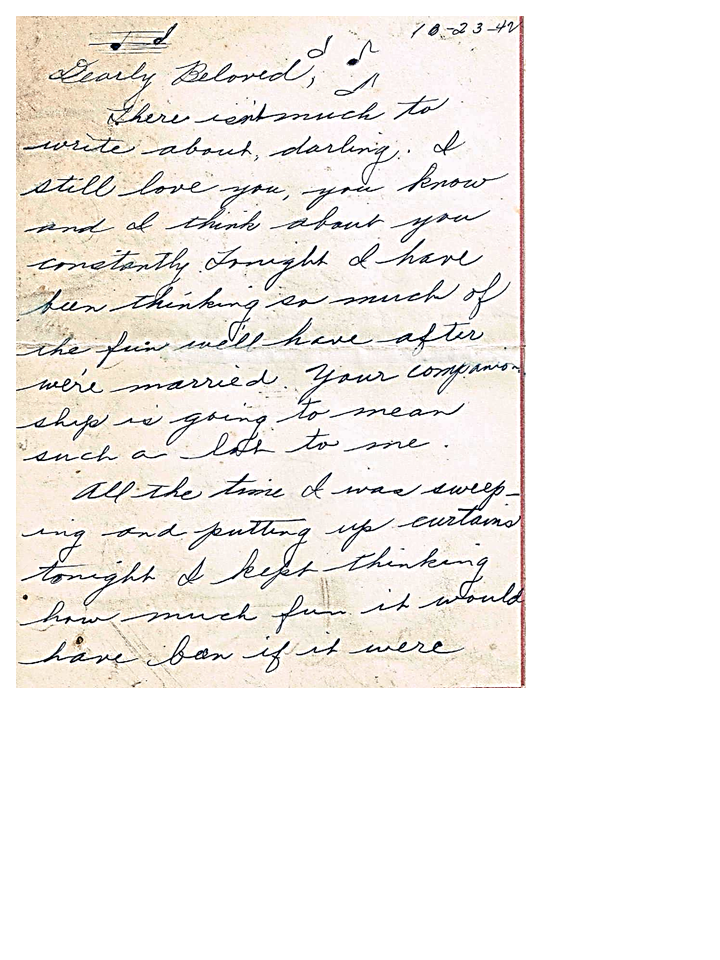 10-23-42
Dearly Beloved,
There isn't much to
write about, darling. I
still love you, you know
and I think about you
constantly. Tonight I have
been thinking so much of
the fun we'll have after
we're married. Your companion-
ship is going to mean
such a lot to me.
All the time I was sweep-
ing and putting up curtains
tonight I kept thinking
how much fun it would
have been if it were